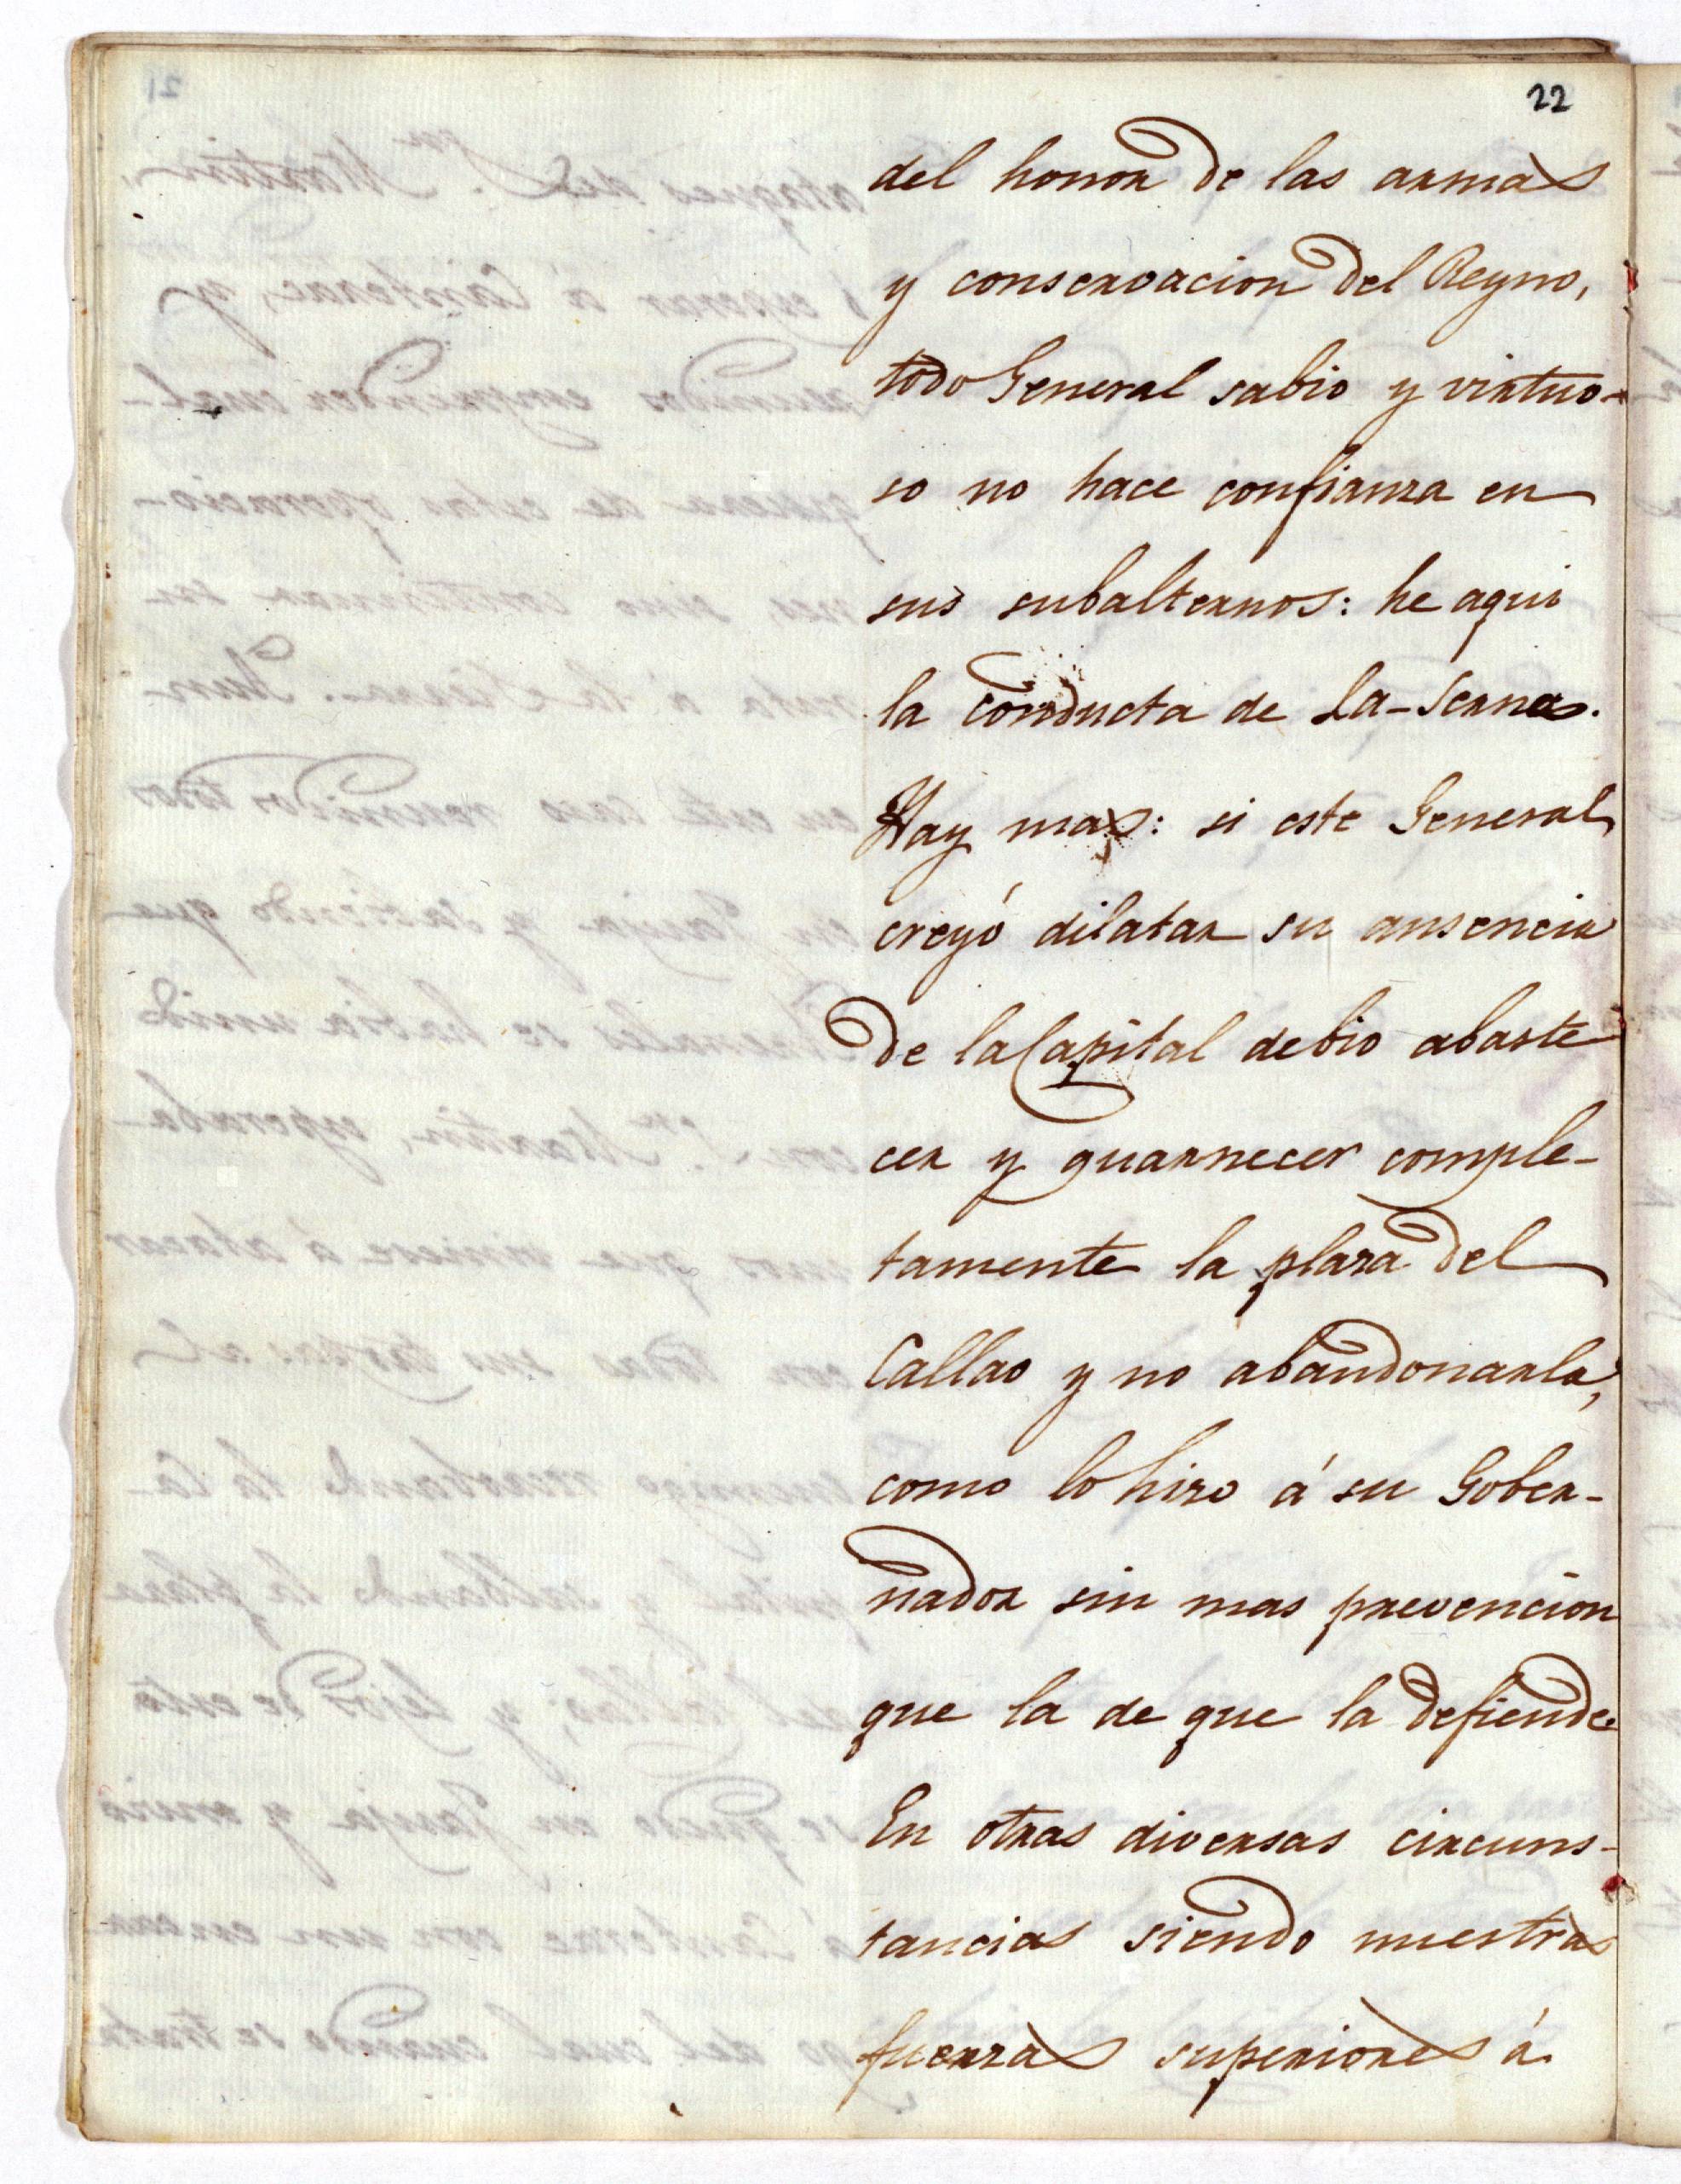 22
del honor de las armas
y conservacion del Reyno,
todo General sabio y virtuo-
so no hace confianza en
sus subalternos: he aqui
la conducta de La-Serna.
Hay mas: si este General
creyó dilatar su ausencia
de la Capital debio abaste
cer y guarnecer comple-
tamente la plaza del
Callao y no abandonarla,
como lo hizo á su Gober-
nador sin mas prevencion
que la de que la defiende
En otras diversas circuns-
tancias siendo nuestras
fuerzas superiores á